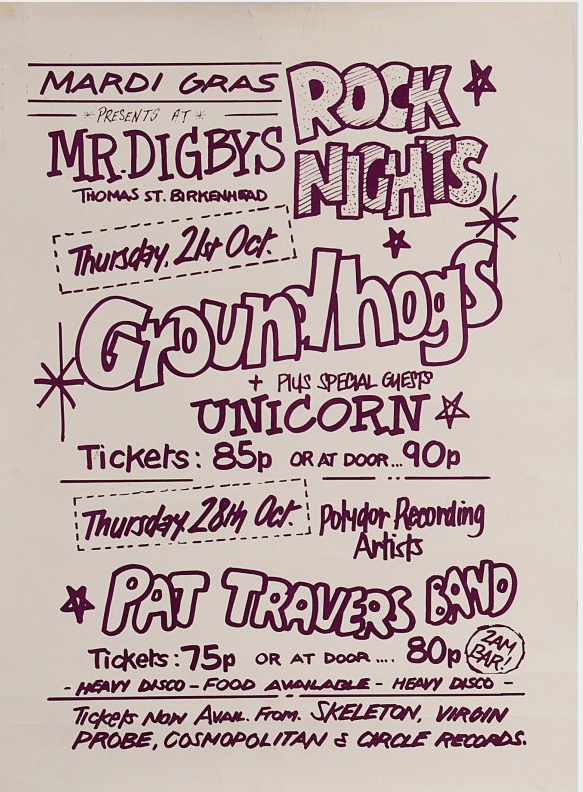 MARDI GRAS
ROCK
NIGHTS
*PRESENTS AT*
MR.DIGBYS
THOMAS ST. BIRKENHEAD
Thursday, 21st Oct.
Groundhogs
+ PlUS SPECIAL GUESTS
UNICORN
Tickets: 85p OR AT DOOR...90p
Thursday 28th Oct.
Polydor Recording
Artists
PAT TRAVERS BAND
Tickets: 75p OR AT DOOR.... 80p
2AM
BAR!
- HEAVY DISCO - FOOD AVAILABLE - HEAVY DISCO -
Tickets Now Avail. From. SKELETON, VIRGIN
PROBE, COSMOPOLITAN & CIRCLE RECORDS.